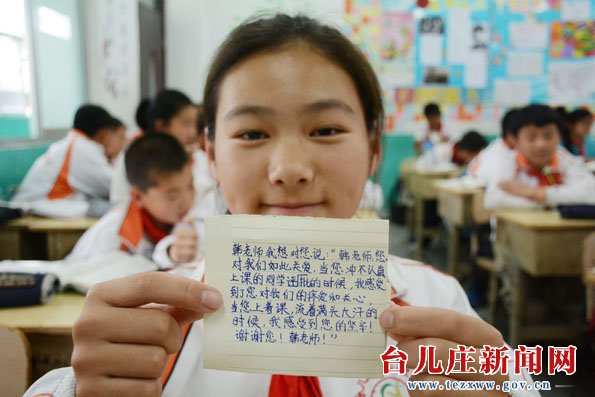 韩老师我想对您说:"韩老师,您
对我们如此关爱,当您冲不认真
上课的同学发脾气的时候,我感受
到您对我们的疼爱和关心,
当您上着课,流着满头大汗的
时候,我感受到您的坚辛!
谢谢您!韩老师!"
台儿庄新闻网
www.tezxww.gov.cn